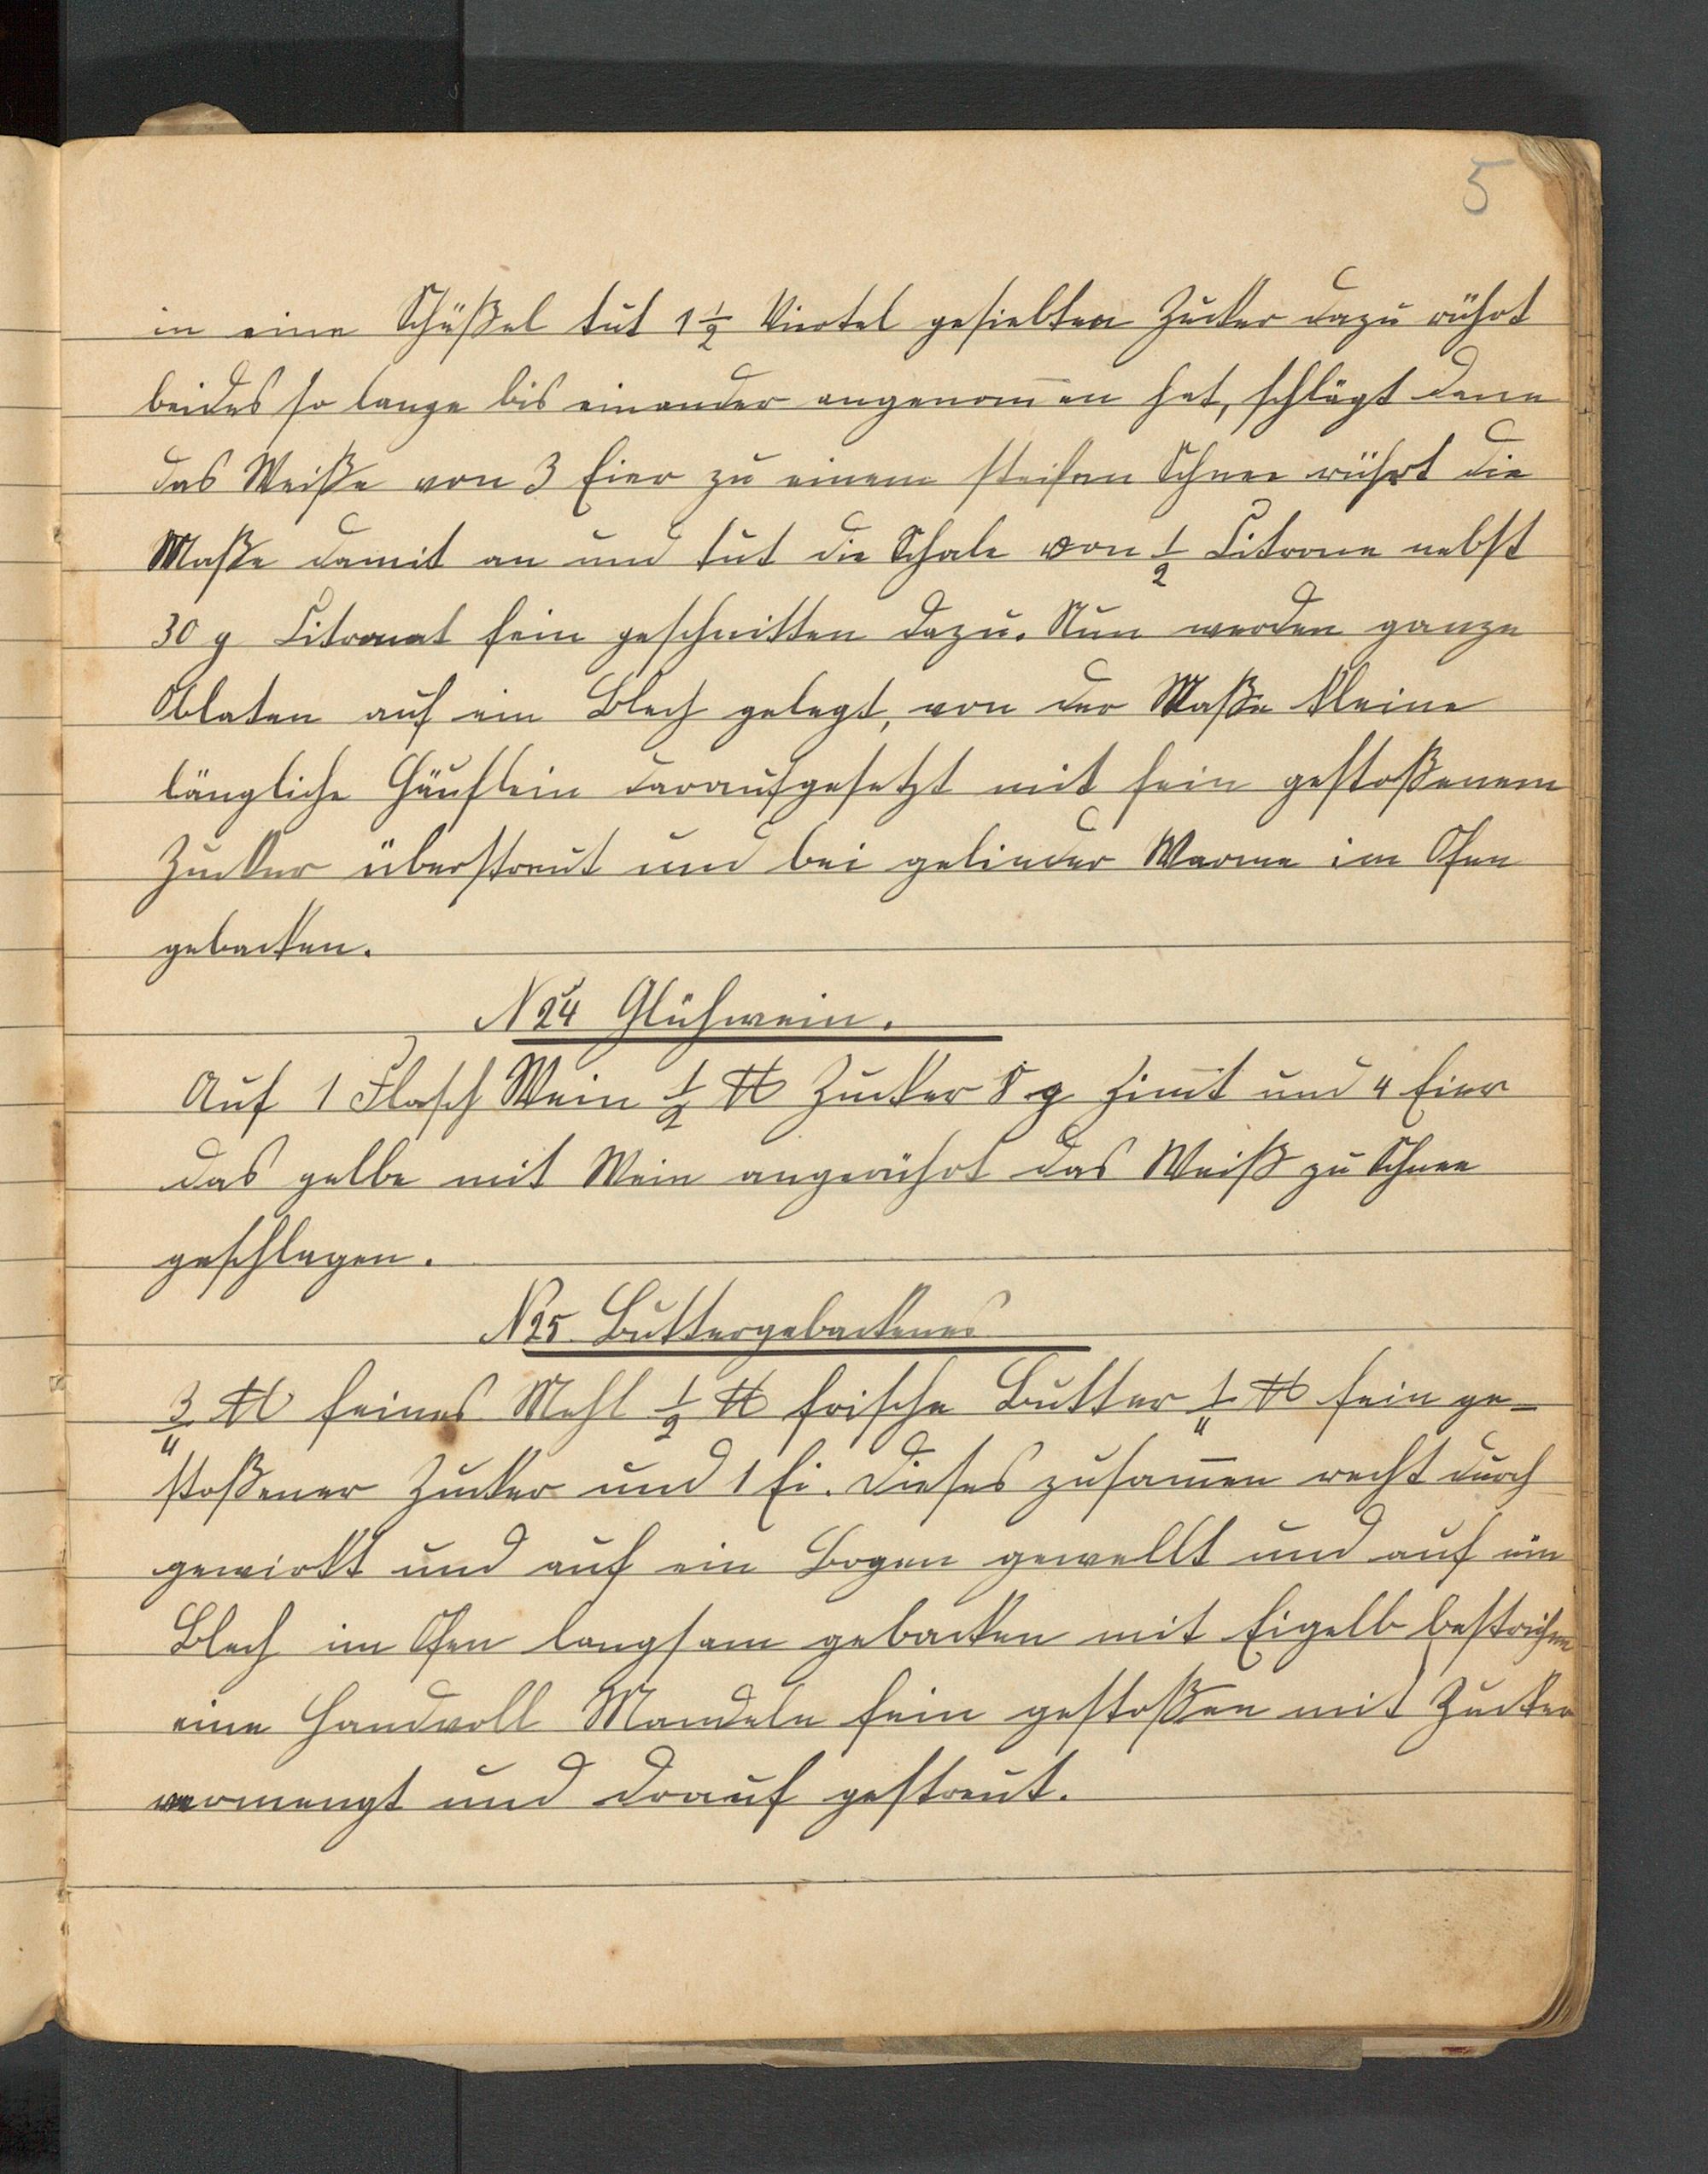 5
in eine Schüßel tut 1 1/2 Viertel gesiebten Zucker dazu rührt
beides so lange bis einander angenom̅en hat, schlägt dann
das Weiße von 3 Eier zu einem steifen Schnee rührt die
Maße damit an und tut die Schale von 1/2 Citrone nebst
30 g Citronat fein geschnitten dazu. Nun werden ganze
Oblaten auf ein Blech gelegt, von der Maße kleine
längliche Häuflein daraufgesetzt mit fein gestoßenem
Zucker überstreut und bei gelinder Warme im Ofen
gebacken.
N 24 Glühwein.
Auf 1 Flasch Wein 1/2 ℔ Zucker 8 g Zim̅t und 4 Eier
das gelbe mit Wein angerührt das Weiß zu Schnee
geschlagen.
N 25. Buttergebackenes
3/4 ℔ feines Mehl 1/2 ℔ frische Butter 1/4 ℔ fein ge-
stoßener Zucker und 1 Ei. Dieses zusam̅en recht durch
gewirkt und auf ein Bogen gewellt und auf ein
Blech im Ofen langsam gebacken mit Eigelb bestrichen
eine Handvoll Mandeln fein gestoßen mit Zucker
vermengt und drauf gestreut.